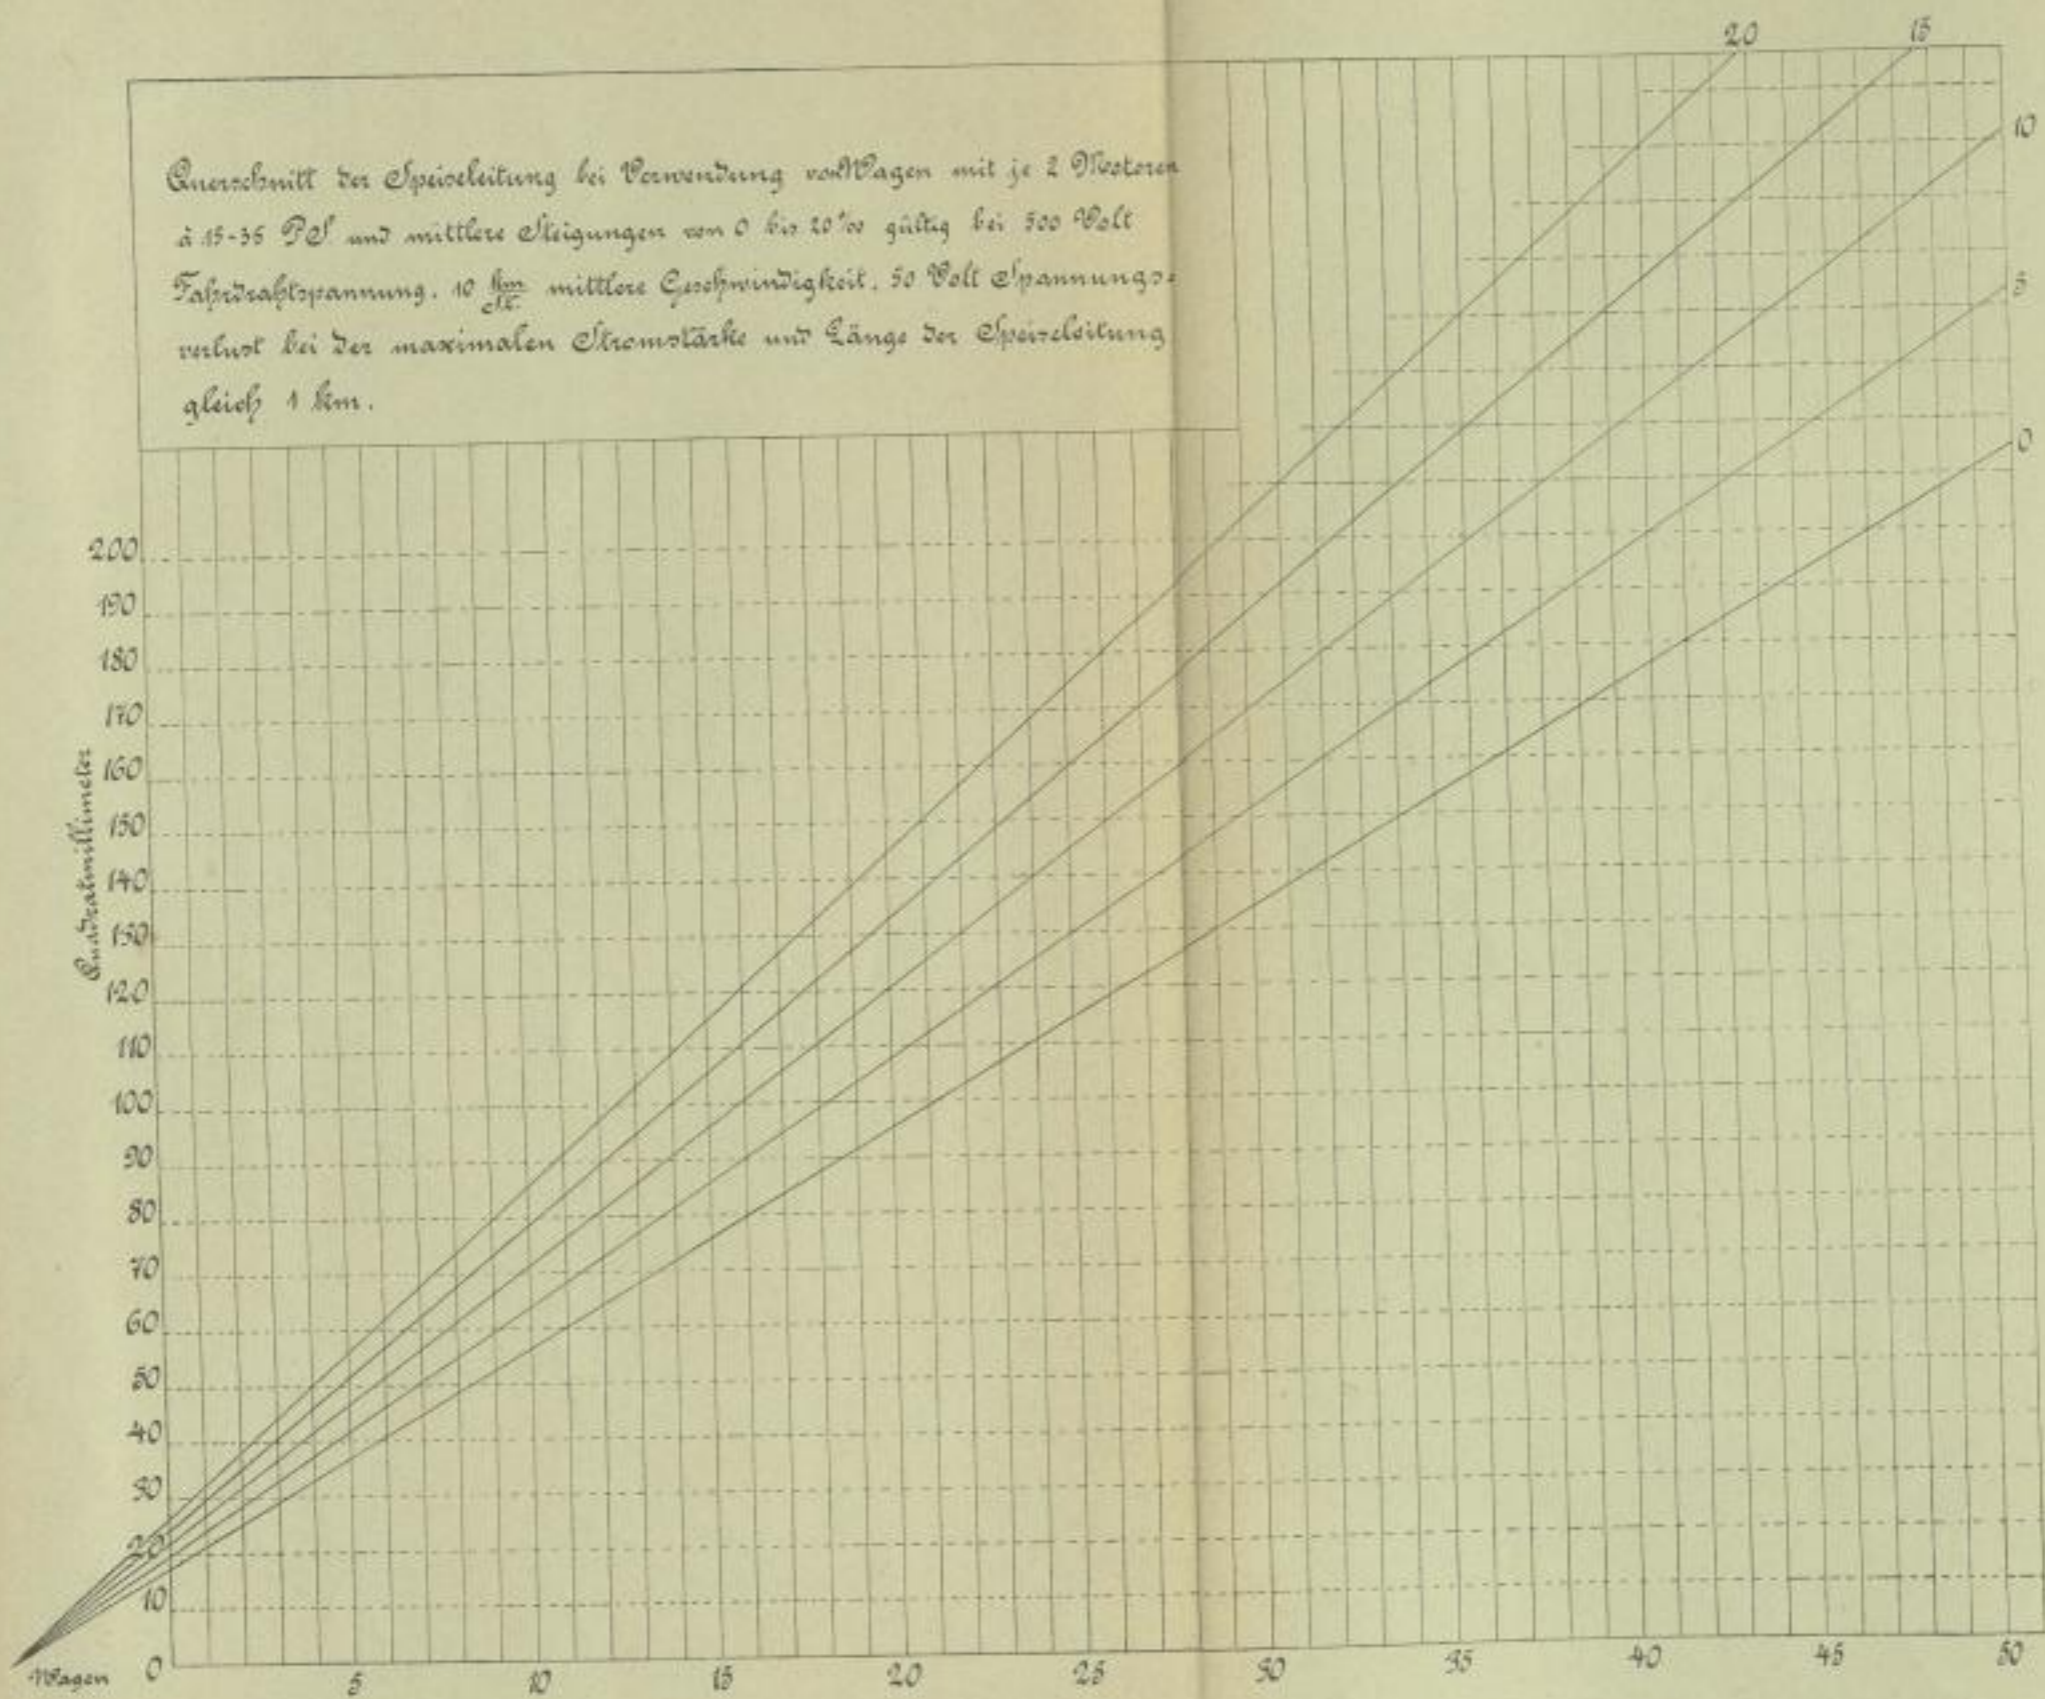 20 15
10
5
0
Querschnitt der Speiseleitung bei Verwendung von Wagen mit je 2 Motoren
à 15-35 PS und mittlere Steigungen von 0 bis 20‰ gültig bei 500 Volt
Fahrdrahtspannung. 10 km/St. mittlere Geschwindigkeit. 50 Volt Spannungs=
verlust bei der maximalen Stromstärke und Länge der Speiseleitung
gleich 1 km.
Quadratmillimeter
200
190
180
170
160
150
140
130
120
110
100
90
80
70
60
50
40
30
20
10
Wagen 0 5 10 15 20 25 30 35 40 45 50